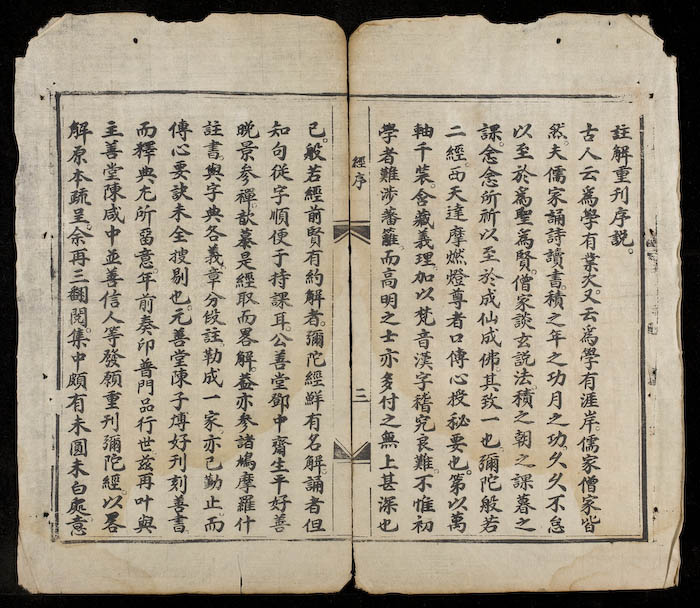 註解重刊序說。
古人云爲學有業矣又云爲學有涯岸。儒家僧家皆
然。夫儒家誦詩讀書。積之年之功月之功。久久不怠
以至於爲聖爲賢。僧家談玄說法積之朝之課暮之
課。念念所祈以至於成仙成佛。其致一也彌陀般若
二經。西天達摩燃燈尊者口傳心授秘要也。第以萬
軸千裝。含藏義理。加以梵音漢字稽究良難。不惟初
學者難涉蕃籬。而高明之士亦多付之無上甚深也
經序
三
已。般若經前賢有約解者。彌陀經鮮有名解。誦者但
知句從字順便于持課耳。公善堂鄧中齋生平好善
晚景參禪。歆慕是經取而畧解。葢亦參諸鳩摩羅什
註書。與字典各義章分段註勒成一家。亦已勤止。而
傳心要訣未全搜剔也。元善堂陳子塼好刊刻善書
而釋典尤所畱意。年前奏印普門品行世茲再叶與
主善堂陳咸中並善信人等發願重刊彌陀經以畧
解原本疏呈。余再三翻閱。集中頗有未圓未白處。意